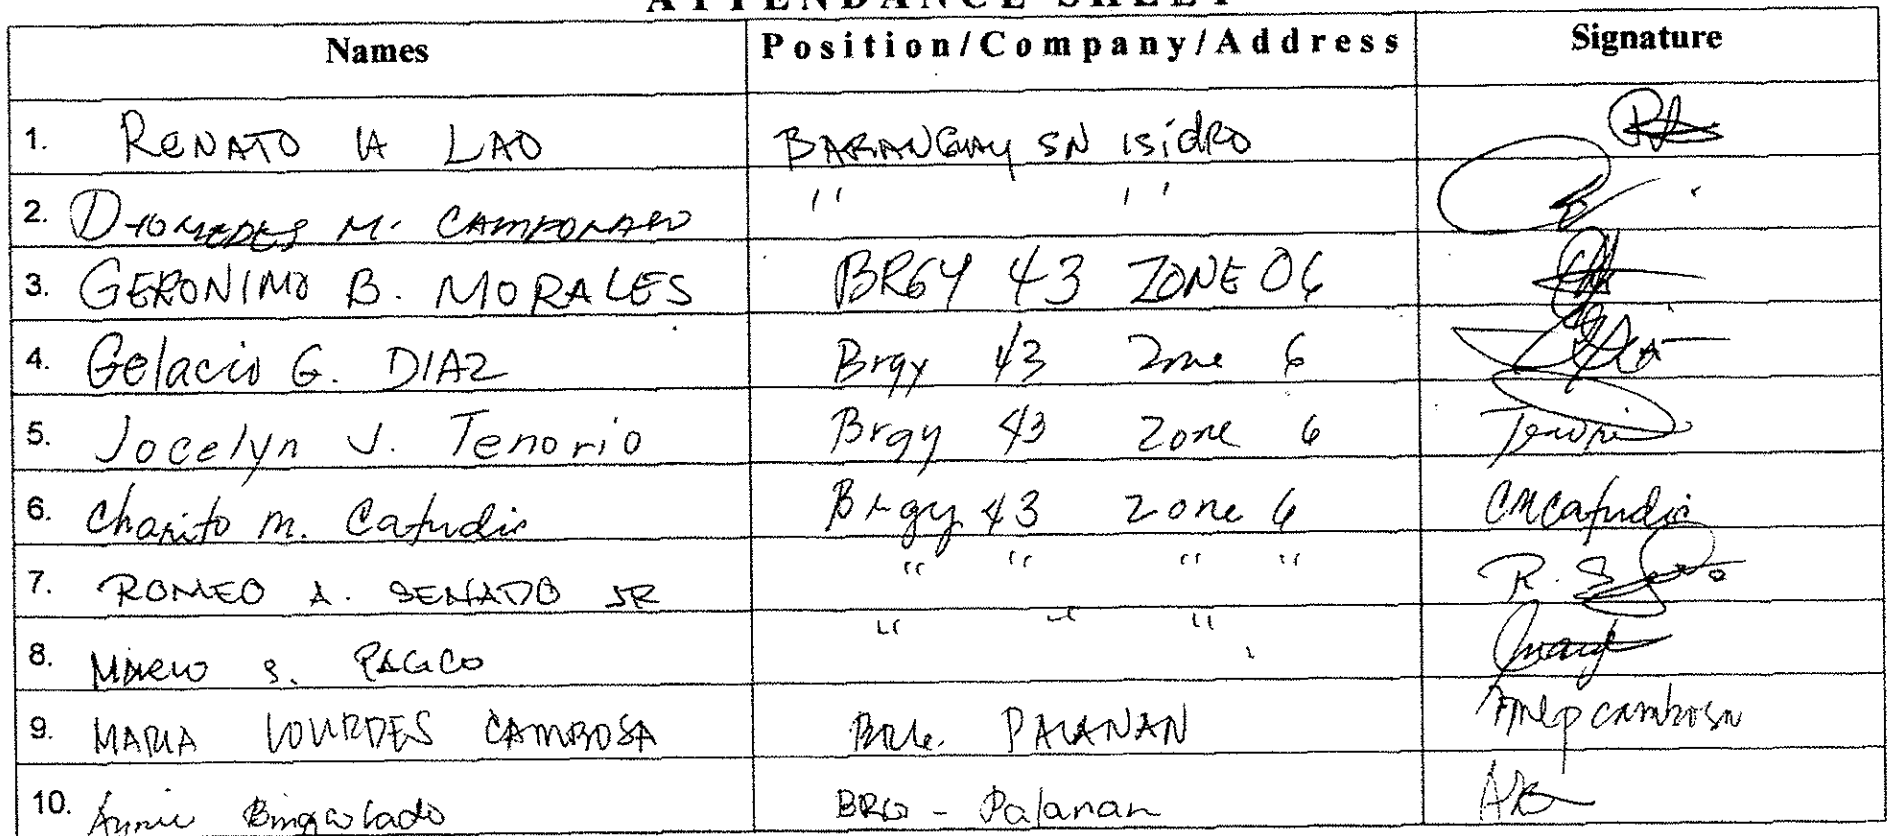 ATTENDANCE SHEET
Names Position/Company/Address Signature
1. RENATO LAO BARANGAY SN ISIdRO
2. DIOMEDES M. " "
3. GERONIMO B. MORALES BRGY 43 ZONE 06
4. Gelacio G. DIAZ Brgy 43 Zone 6
5. Jocelyn J. Tenorio Brgy 43 Zone 6 Tenorio
6. Charito M. Catudio Brgy 43 Zone 6 CMCatudio
7. ROMEO A. SENADO JR " " "
8. MARIO S. " " "
9. MARIA LOURDES CAMBOSA PALANAN
10. Annie - Palanan